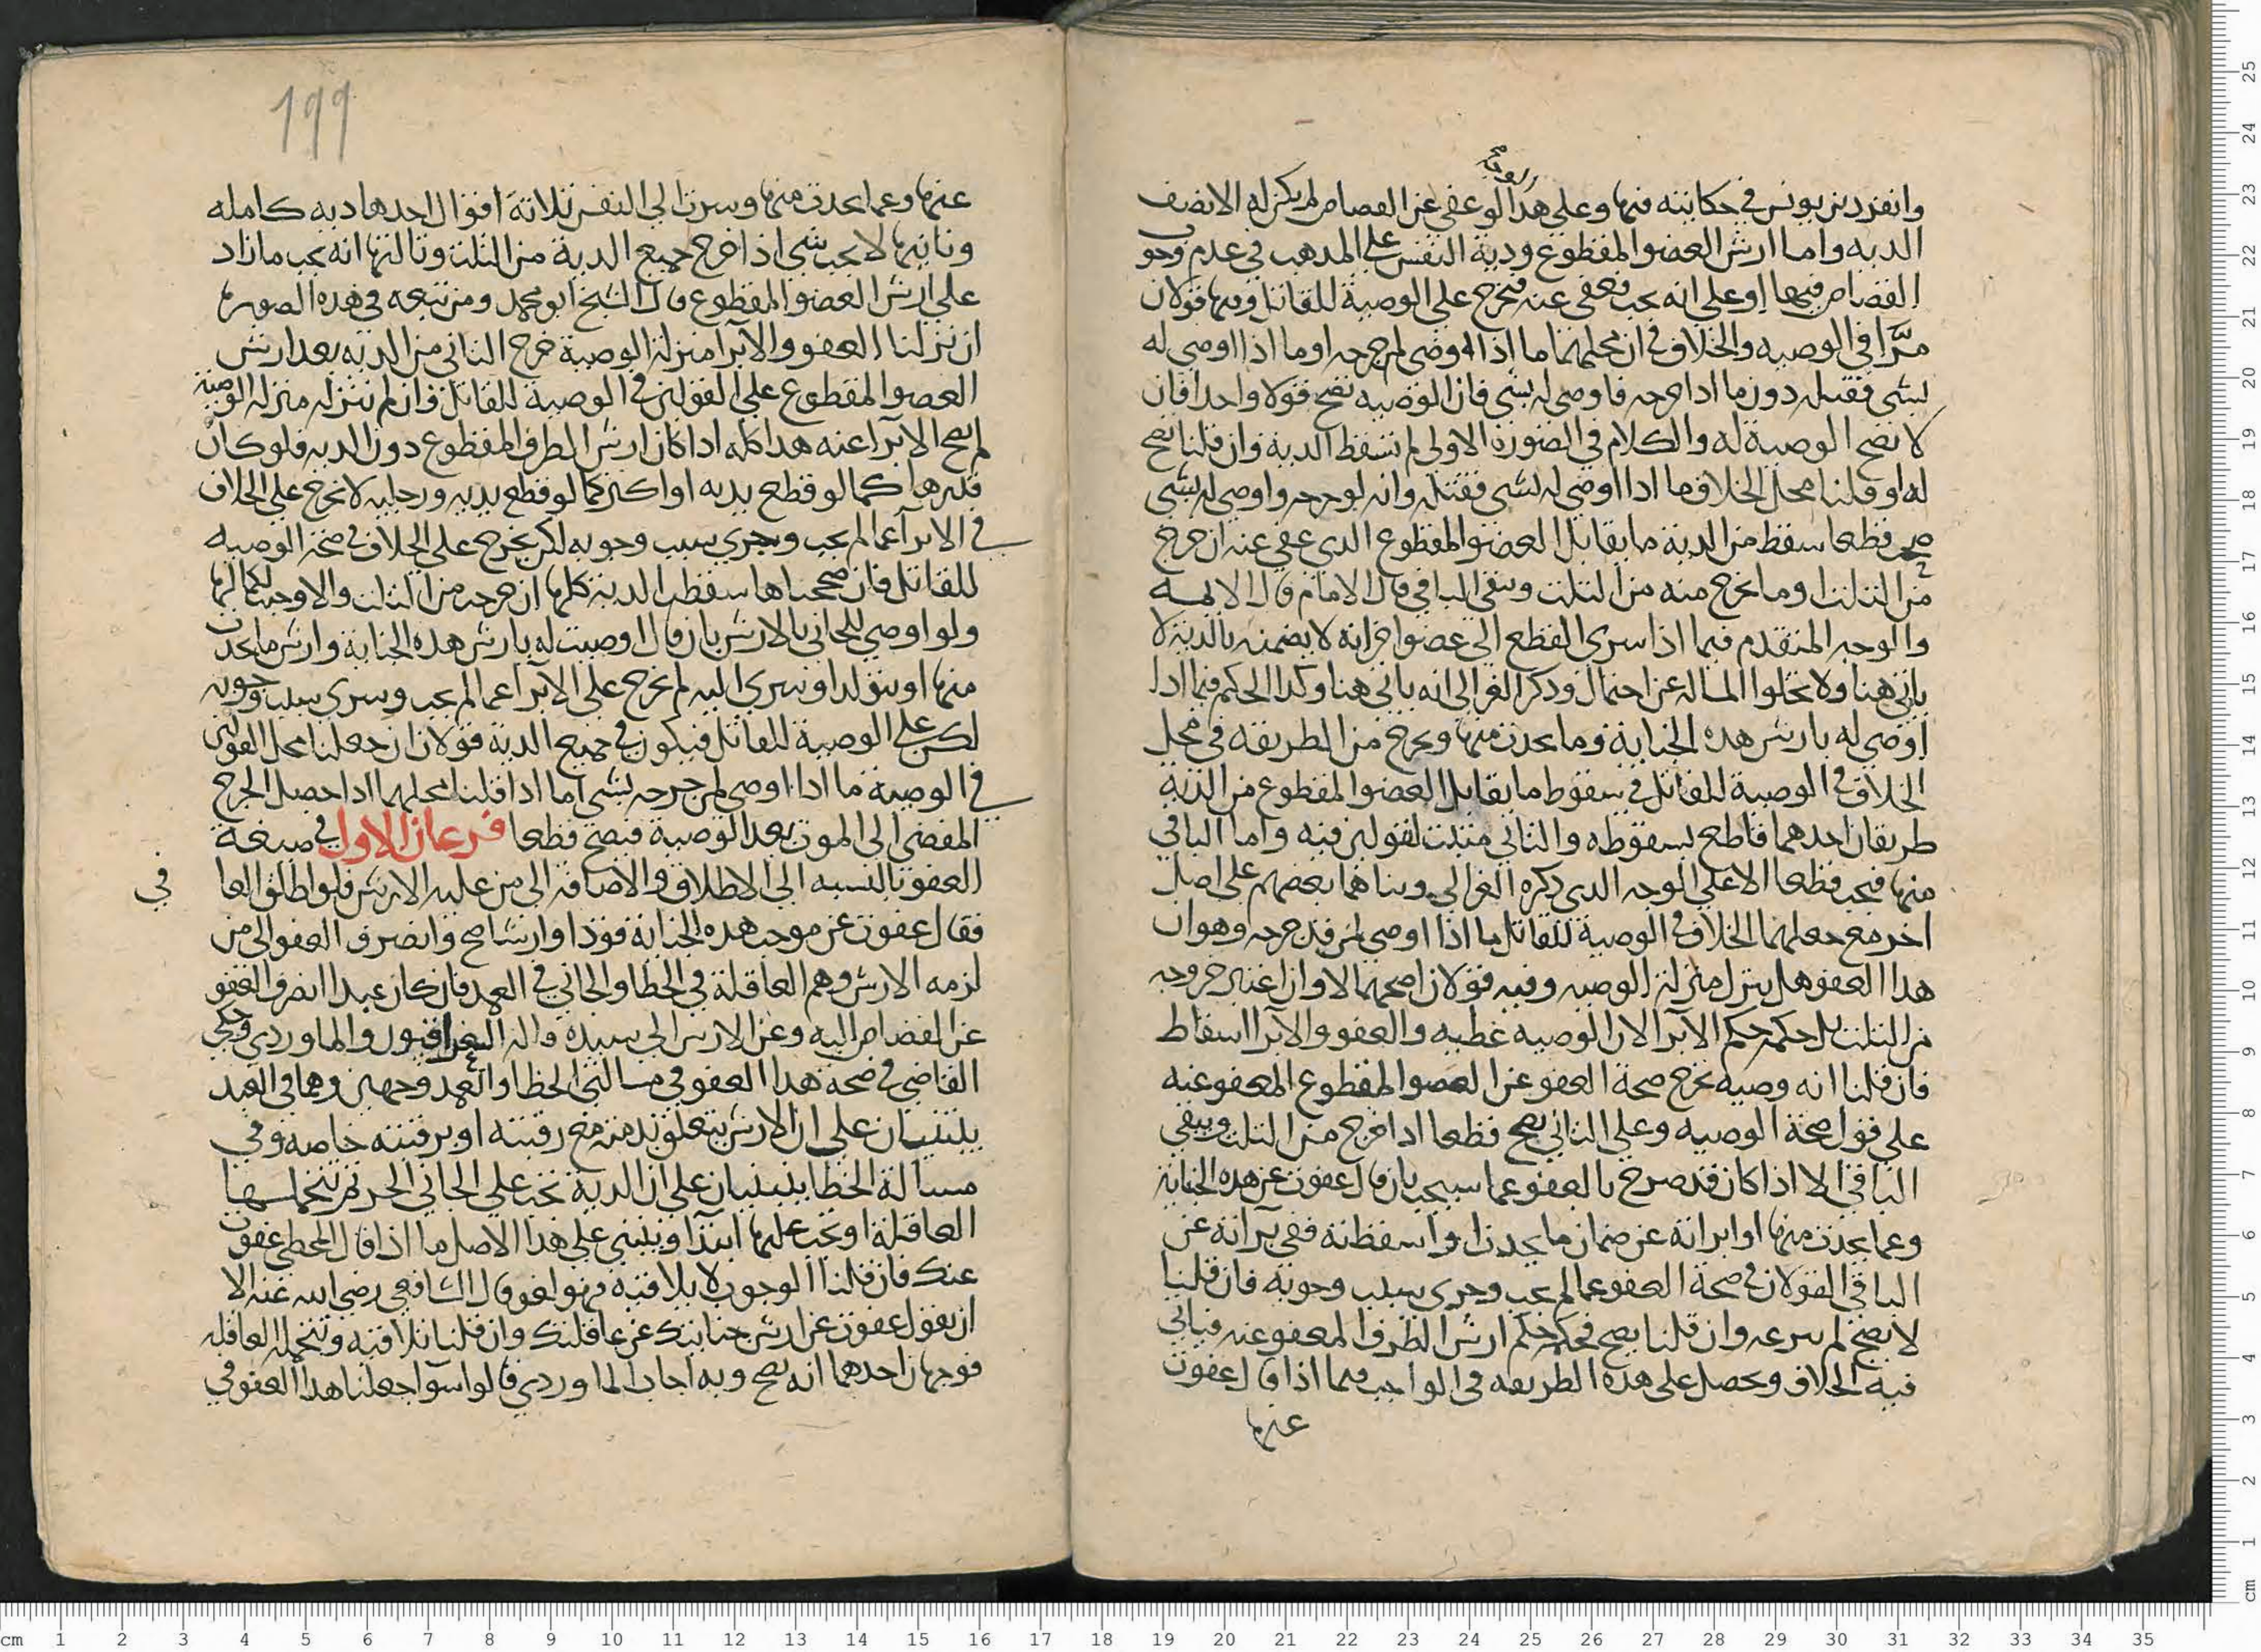 الولي صح
وانفرد بن يونس في حكايته فيها وعلي هذا لو عفي عن القصاص لم يكن له الا نصف
الديه واما ارش العضو المقطوع ودية النفس علي المذهب في عدم وجوب
القصاص فيها او علي انه يجب فعفي عنه فتخرج علي الوصية للقاتل وفيها قولان
مرا في الوصيه والخلاف في ان محلهما ما اذا اوصي لمن جرحه او ما اذا اوصي له
بشي فقتله دون ما اذا جرحه فاوصي له بشي فان الوصيه تصح قولا واحدا فان
لا تصح الوصية له والكلام في الصورة الاولي لم تسقط الدية وان قلنا تصح
له او قلنا محل الخلاف ما اذا اوصي له بشي فقتله وانه لو جرحه واوصي له بشي
صح قطعا سقط من الدية ما يقابل العضو المقطوع الذي عفي عنه ان خرج
من الثلث او ما يخرج منه من الثلث وبقي الباقي قال الامام قال الايمه
والوجه المتقدم فيما اذا سري القطع الي عضو اخر انه لا يضمنه بالدية لا
ياتي هنا ولا تخلوا المساله عن احتمال وذكر الغزالي انه ياتي هنا وكذا الحكم فيما اذا
اوصي له بارش هذه الجناية وما يحدث منها ويخرج من الطريقه في محل
الخلاف في الوصية للقاتل في سقوط ما يقابل العضو المقطوع من الدية
طريقان احدهما قاطع بسقوطه والثاني مثبت لقولين فيه واما الباقي
منها فيجب قطعا الا علي الوجه الذي ذكره الغزالي وبناهما بعضهم علي اصل
اخر مع جعلهما الخلاف في الوصية للقاتل ما اذا اوصي لمن قد جرحه وهو ان
هذا العفو هل ينزل منزلة الوصيه وفيه قولان اصحهما لا وان اعتبر خروجه
من الثلث بل حكمه حكم الابرا لان الوصيه عطيه والعفو والابرا اسقاط
فان قلنا انه وصيه تخرج صحة العفو عن العضو المقطوع المعفو عنه
علي قول صحة الوصيه وعلي الثاني يصح قطعا اذا خرج من الثلث ويبقي
الباقي الا اذا كان قد صرح بالعفو عما سيجب بان قال عفوت عن هذه الجناية
وعما يحدث منها او ابراته عن ضمان ما يحدث او اسقطته ففي براته عن
الباقي القولان في صحة العفو عما لم يجب وجري سبب وجوبه فان قلنا
لا يصح لم يبرعه وان قلنا يصح فحكمه حكم ارش الطرف المعفو عنه فياتي
فيه الخلاف ويحصل علي هذه الطريقه في الواجب فيما اذا قال عفوت
عنها
١٩٩
عنها وعما يحدث منها وسرت الي النفس ثلاثة اقوال احدها ديه كامله
وثانيها لا يجب شي اذا خرج جميع الدية من الثلث وثالثها انه يجب ما زاد
علي ارش العضو المقطوع قال الشيخ ابو محمد ومن تبعه في هذه الصوره
ان نزلنا العفو والابرا منزلة الوصية خرج الثاني من الديه بعد ارش
العضو المقطوع علي القولين في الوصية للقاتل وان لم ننزله منزله الوصية
لم يصح الابرا عنه هذا كله اذا كان ارش الطرف المقطوع دون الديه ولو كان
قدرها كما لو قطع يديه او اكثر كما لو قطع يديه ورجليه لا تخرج علي الخلاف
في الابرا عما لم يجب وجري سبب وجوبه لكن يخرج علي الخلاف في صحة الوصيه
للقاتل فان صححناها سقطت الدية كلها ان خرجت من الثلث والا وجبت بكمالها
ولو اوصي للجاني بالارش بان قال اوصيت له بارش هذه الجناية وارش ما يحدث
منها او يتولد او يسري اليه لم تخرج علي الابرا عما لم يجب وسري سبب وجوبه
لكن علي الوصية للقاتل فيكون في جميع الدية قولان ان جعلنا محل القولين
في الوصية ما اذا اوصي لمن جرحه بشي اما اذا قلنا محلهما اذا حصل الجرح
المفضي الي الموت بعد الوصية فيصح قطعا فرعان الاول في صيغة
العفو بالنسبه الي الاطلاق والاضافه الي من عليه الارش فلو اطلق العا
في
فقال عفوت عن موجب هذه الجناية قودا وارشا صح وانصرف العفو الي من
لزمه الارش وهم العاقلة في الخطا والجاني في العمد فان كان عبدا انصرف العفو
عن القصاص اليه وعن الارش الي سيده قاله العراقيون والماوردي وحكي
القاضي في صحة هذا العفو في مسالتي الخطا والعمد وجهين وهما في العبد
يبنيان علي ان الارش يتعلق بذمته مع رقبته او برقبته خاصه وفي
مسالة الخطا ينبنيان علي ان الدية تجب علي الجاني الحر ثم تتحملها
العاقلة او تجب عليها ابتدا وينبني علي هذا الاصل ما اذا قال للمخطي عفوت
عنك فان قلنا الوجوب لا يلاقيه فهو لغو قال الشافعي رضي الله عنه الا
ان يقول عفوت عن ارش جنايتك عن عاقلتك وان قلنا تلاقيه وتتحمله العاقله
فوجهان احدهما انه يصح وبه اجاب الماوردي قالوا سوا جعلنا هذا العفو في